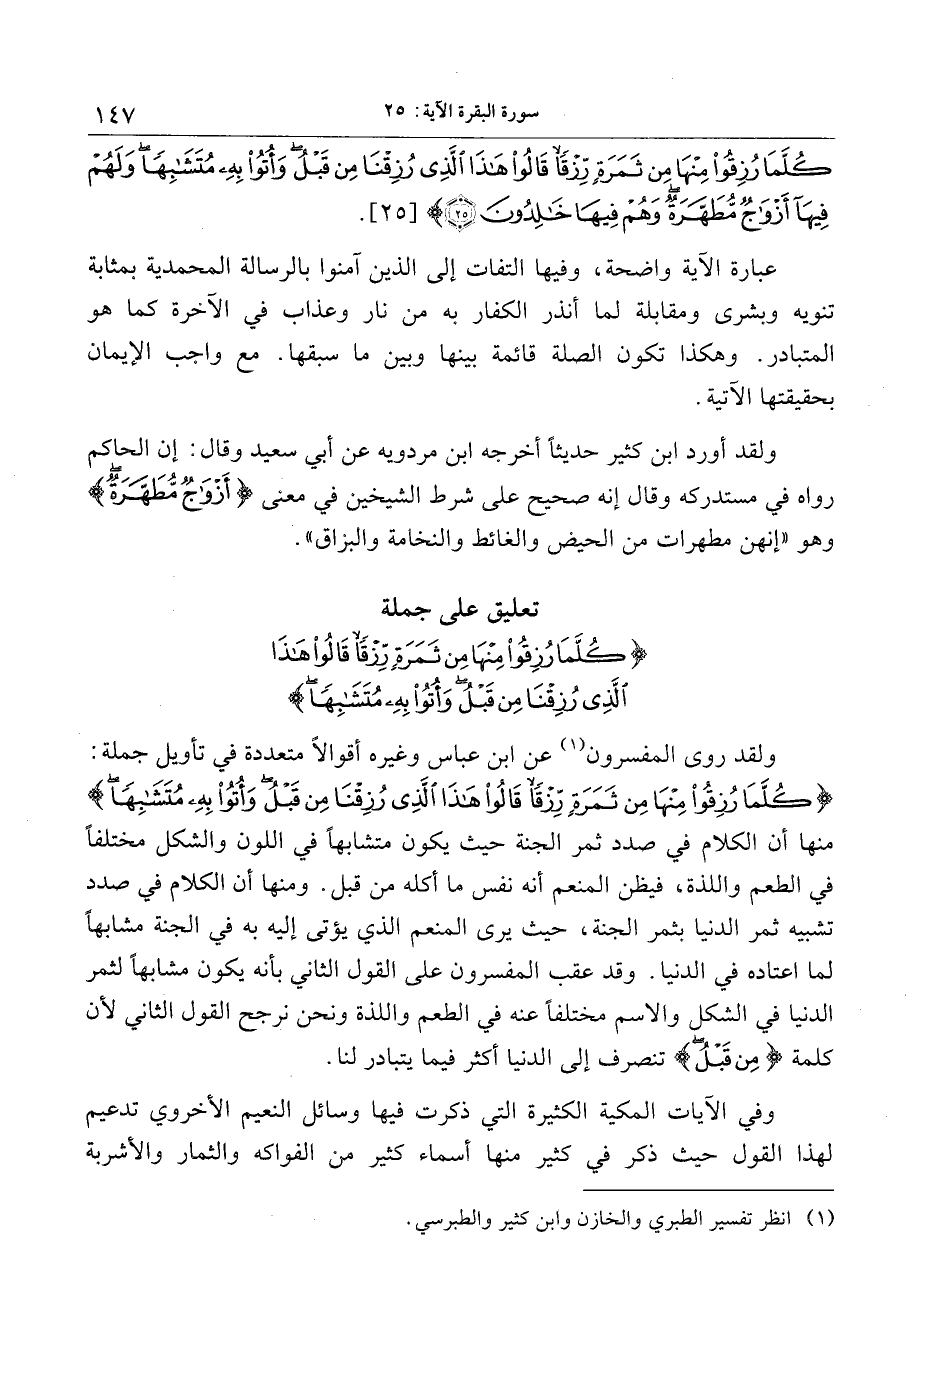 سورة البقرة الآية: ٢٥
١٤٧
كُلَّمَا رُزِقُوا۟ مِنْهَا مِن ثَمَرَةٍ رِّزْقًا ۙ قَالُوا۟ هَٰذَا ٱلَّذِى رُزِقْنَا مِن قَبْلُ ۖ وَأُتُوا۟ بِهِۦ مُتَشَٰبِهًا ۖ وَلَهُمْ
فِيهَآ أَزْوَٰجٌ مُّطَهَّرَةٌ ۖ وَهُمْ فِيهَا خَٰلِدُونَ ۝٢٥﴾ [٢٥].
عبارة الآية واضحة، وفيها التفات إلى الذين آمنوا بالرسالة المحمدية بمثابة
تنويه وبشرى ومقابلة لما أنذر الكفار به من نار وعذاب في الآخرة كما هو
المتبادر. وهكذا تكون الصلة قائمة بينها وبين ما سبقها. مع واجب الإيمان
بحقيقتها الآتية.
ولقد أورد ابن كثير حديثاً أخرجه ابن مردويه عن أبي سعيد وقال: إن الحاكم
رواه في مستدركه وقال إنه صحيح على شرط الشيخين في معنى ﴿أَزْوَٰجٌ مُّطَهَّرَةٌ ۖ﴾
وهو «إنهن مطهرات من الحيض والغائط والنخامة والبزاق».
تعليق على جملة
﴿كُلَّمَا رُزِقُوا۟ مِنْهَا مِن ثَمَرَةٍ رِّزْقًا ۙ قَالُوا۟ هَٰذَا
ٱلَّذِى رُزِقْنَا مِن قَبْلُ ۖ وَأُتُوا۟ بِهِۦ مُتَشَٰبِهًا ۖ﴾
ولقد روى المفسرون(١) عن ابن عباس وغيره أقوالاً متعددة في تأويل جملة:
﴿كُلَّمَا رُزِقُوا۟ مِنْهَا مِن ثَمَرَةٍ رِّزْقًا ۙ قَالُوا۟ هَٰذَا ٱلَّذِى رُزِقْنَا مِن قَبْلُ ۖ وَأُتُوا۟ بِهِۦ مُتَشَٰبِهًا ۖ﴾
منها أن الكلام في صدد ثمر الجنة حيث يكون متشابهاً في اللون والشكل مختلفاً
في الطعم واللذة، فيظن المنعم أنه نفس ما أكله من قبل. ومنها أن الكلام في صدد
تشبيه ثمر الدنيا بثمر الجنة، حيث يرى المنعم الذي يؤتى إليه به في الجنة مشابهاً
لما اعتاده في الدنيا. وقد عقب المفسرون على القول الثاني بأنه يكون مشابهاً لثمر
الدنيا في الشكل والاسم مختلفاً عنه في الطعم واللذة ونحن نرجح القول الثاني لأن
كلمة ﴿مِن قَبْلُ ۖ﴾ تنصرف إلى الدنيا أكثر فيما يتبادر لنا.
وفي الآيات المكية الكثيرة التي ذكرت فيها وسائل النعيم الأخروي تدعيم
لهذا القول حيث ذكر في كثير منها أسماء كثير من الفواكه والثمار والأشربة
(١) انظر تفسير الطبري والخازن وابن كثير والطبرسي.